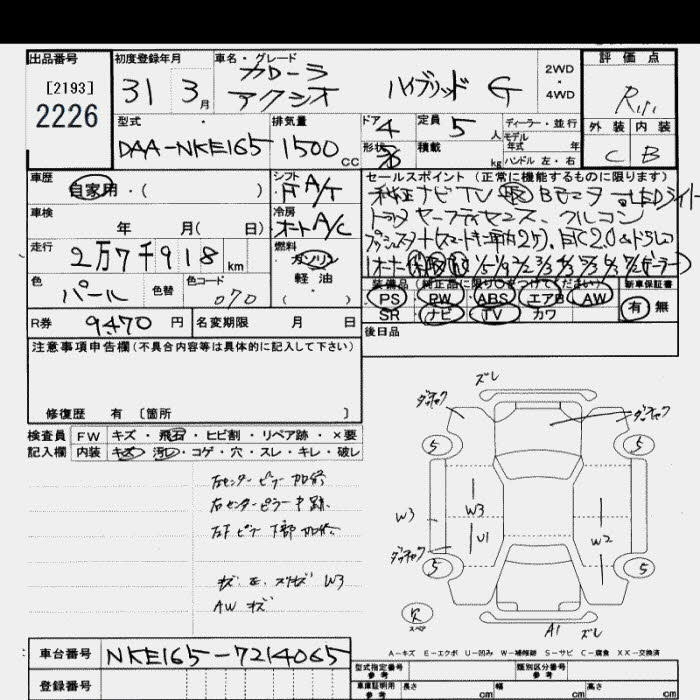 出品番号
[2193]
2226
初度登録年月
31 3月
車名・グレード
カローラ
アクシオ
ハイブリッド G
2WD
・
4WD
評価点
R
外装 内装
C B
型式
DAA-NKE165
排気量
1500 cc
ドア 4
形状
定員 5 人
積載 kg
ディーラー・並行
モデル
年式 年
ハンドル 左・右
車歴
自家用・( )
シフト
F A/T
車検
年 月( 日)
冷房
オート A/C
走行
2万7千918 km
燃料
ガソリン
軽油
( )
色
パール
色替
色コード
070
R券 9470 円
名変期限 月 日
セールスポイント (正常に機能するものに限ります)
純正ナビTV 取 Bモニター LEDライト
トヨタセーフティセンス、クルコン
プッシュスタート スマートキー 2ケ、ETC2.0 ドラレコ
1オーナー 保 取
装備品 (純正品に限り○をつけてください)
新車保証書
PS PW ABS エアB AW
SR ナビ TV カワ
有 無
後日品
注意事項申告欄(不具合内容等は具体的に記入して下さい)
修復歴 有 〔箇所 〕
検査員
記入欄
FW キズ・飛石・ヒビ割・リペア跡・×要
内装 キズ・汚れ・コゲ・穴・スレ・キレ・破レ
左センターピラー 加修
右センターピラー
下部 加修
W3
AW キズ
ズレ
5
5
W3
W3
U1
W2
5
5
欠
スペア
A1 ズレ
A-キズ E-エクボ U-凹み W-補修跡 S-サビ C-腐食 XX-交換済
車台番号
NKE165-7214065
登録番号
型式指定番号
類別区分番号
車庫証明用
参考
長さ cm
幅 cm
高さ cm